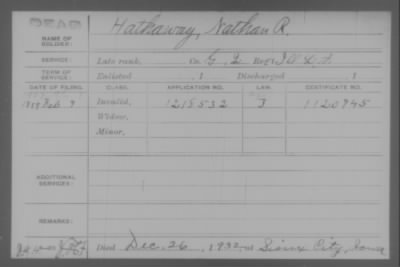 DEAD
Hathaway, Nathan R.
NAME OF SOLDIER:
SERVICE: Late rank, Co. G, 2 Reg't
TERM OF SERVICE: Enlisted , 1 Discharged , 1
DATE OF FILING. CLASS. APPLICATION NO. LAW. CERTIFICATE NO.
Feb. 9 Invalid, 1215532 J 1120945
Widow,
Minor,
ADDITIONAL SERVICES:
REMARKS:
Died Dec. 26, 1932, at Sioux City, Iowa